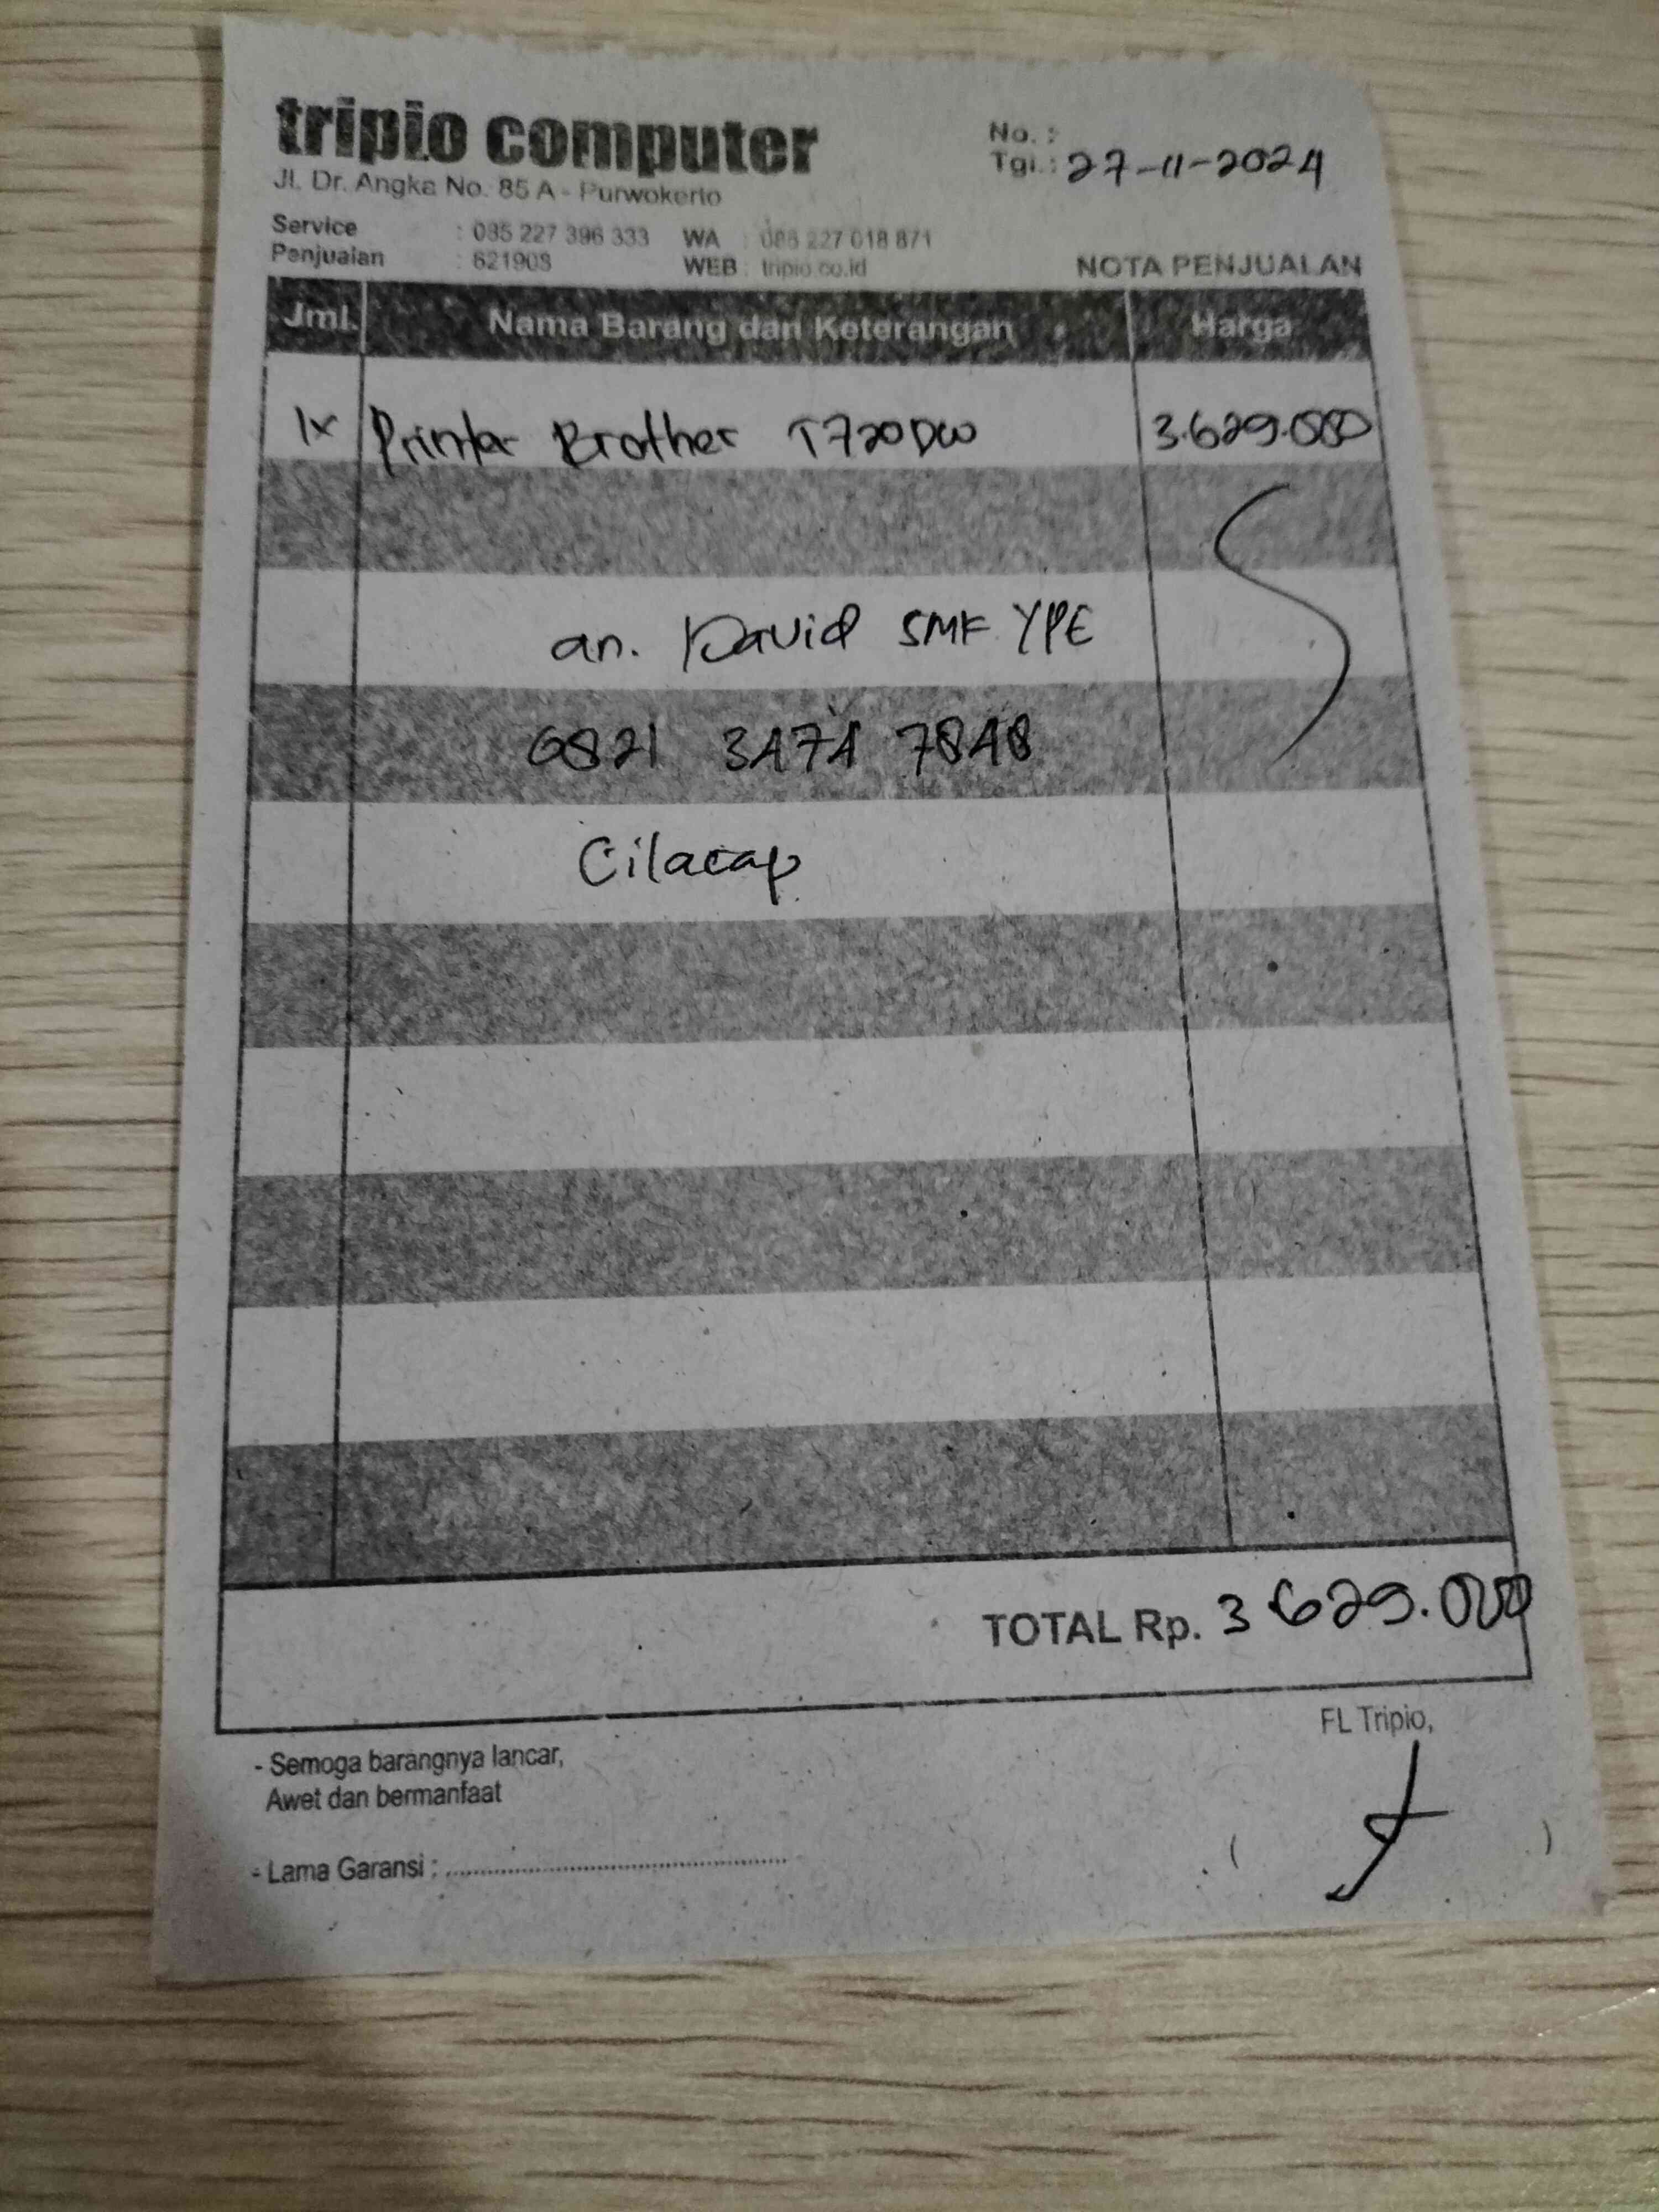 tripio computer
Jl. Dr. Angka No. 85 A - Purwokerto
No. :
Tgl. : 27-11-2024
Service : 085 227 396 333 WA : 088 227 018 871
Penjualan : 621908 WEB : tripio.co.id
NOTA PENJUALAN
Jml. Nama Barang dan Keterangan Harga
1x Printer Brother T720DW 3.629.000
an. David SMK YPE
0821 3474 7848
Cilacap
TOTAL Rp. 3.629.000
FL Tripio,
- Semoga barangnya lancar,
Awet dan bermanfaat
- Lama Garansi : ..........
( )